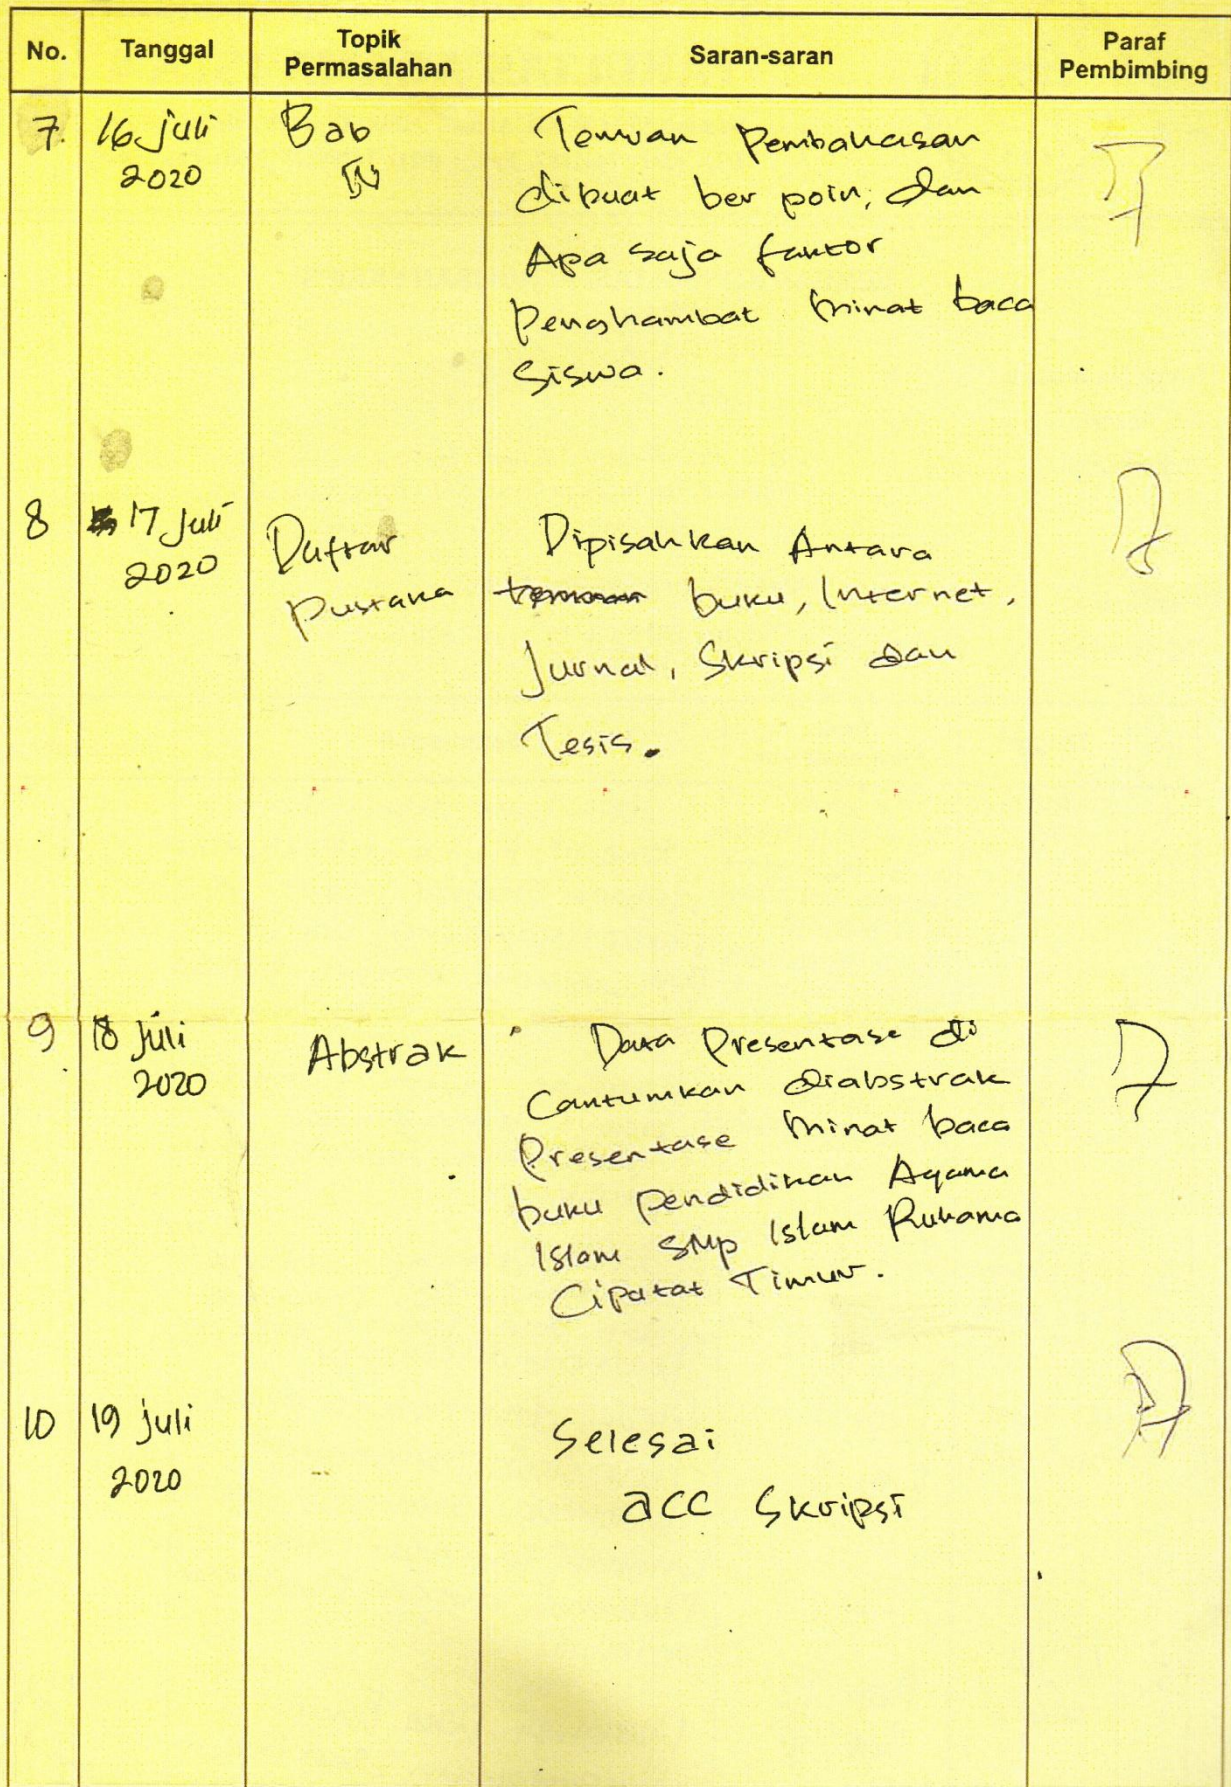 No. Tanggal Topik Permasalahan Saran-saran Paraf Pembimbing
7. 16 juli 2020
Bab
IV
Temuan Pembahasan
dibuat ber poin, dan
Apa saja faktor
Penghambat minat baca
Siswa.
8 17 Juli 2020
Daftar
Pustaka
Dipisahkan Antara
buku, Internet,
Jurnal, Skripsi dan
Tesis.
9 18 Juli 2020
Abstrak
Data Presentase di
Cantumkan diabstrak
Presentase minat baca
buku pendidikan Agama
Islam SMP Islam Ruhama
Ciputat Timur.
10 19 juli 2020
Selesai
acc Skripsi